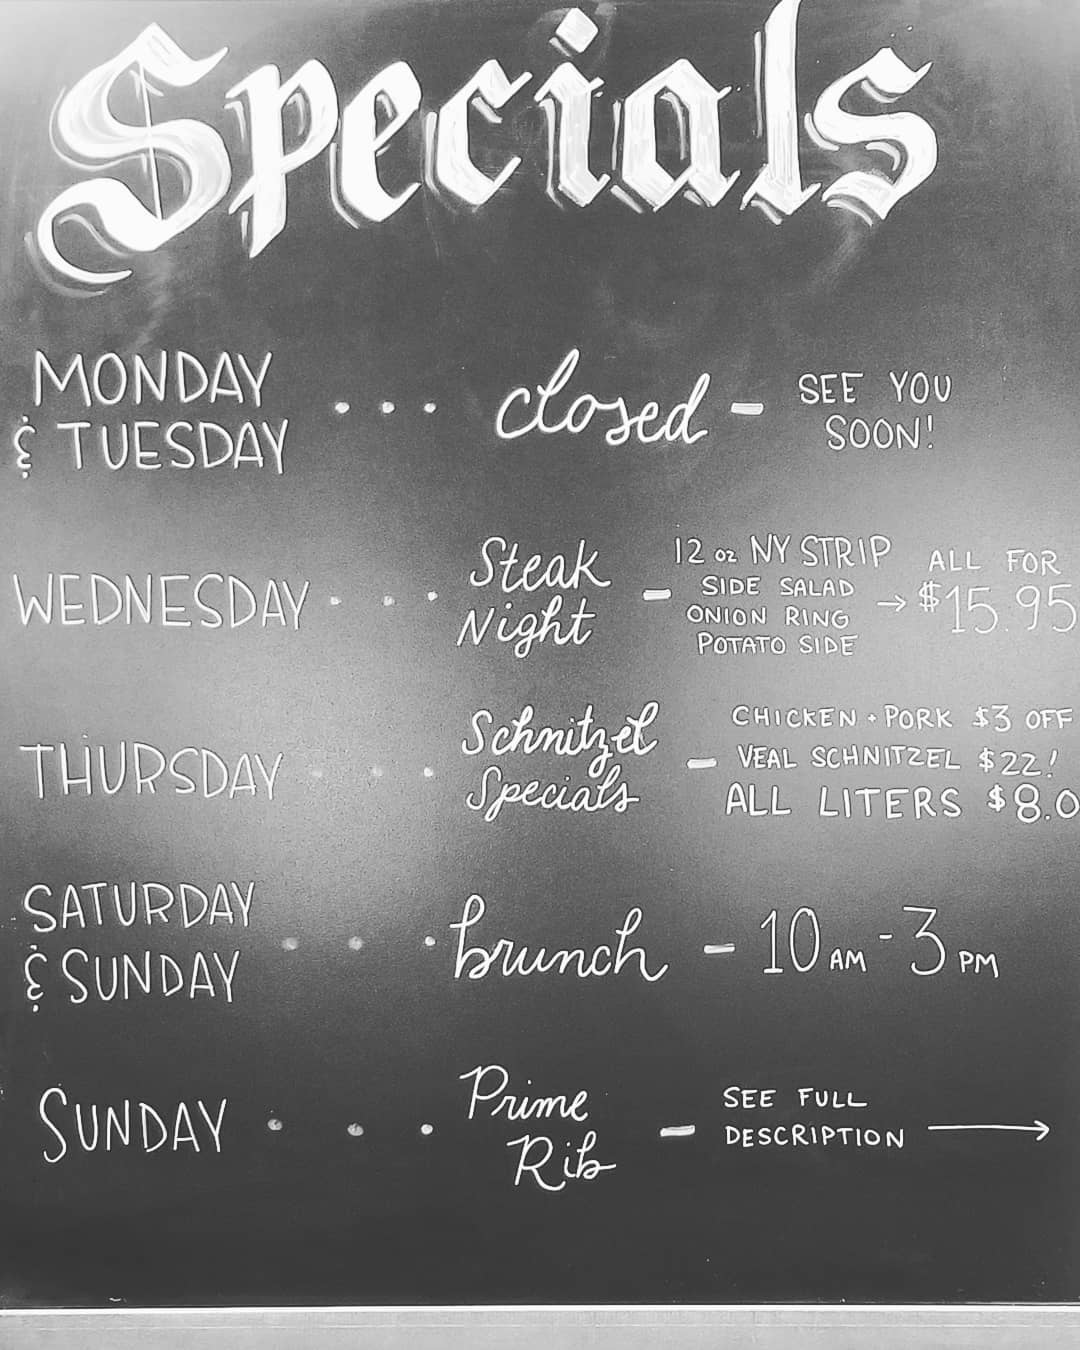 Specials
MONDAY
& TUESDAY ... closed - SEE YOU
SOON!
WEDNESDAY ... Steak
Night - 12 oz NY STRIP
SIDE SALAD
ONION RING
POTATO SIDE → ALL FOR
$15.95
THURSDAY ... Schnitzel
Specials - CHICKEN + PORK $3 OFF
VEAL SCHNITZEL $22!
ALL LITERS $8.0
SATURDAY
& SUNDAY ... brunch - 10 AM - 3 PM
SUNDAY ... Prime
Rib - SEE FULL
DESCRIPTION →